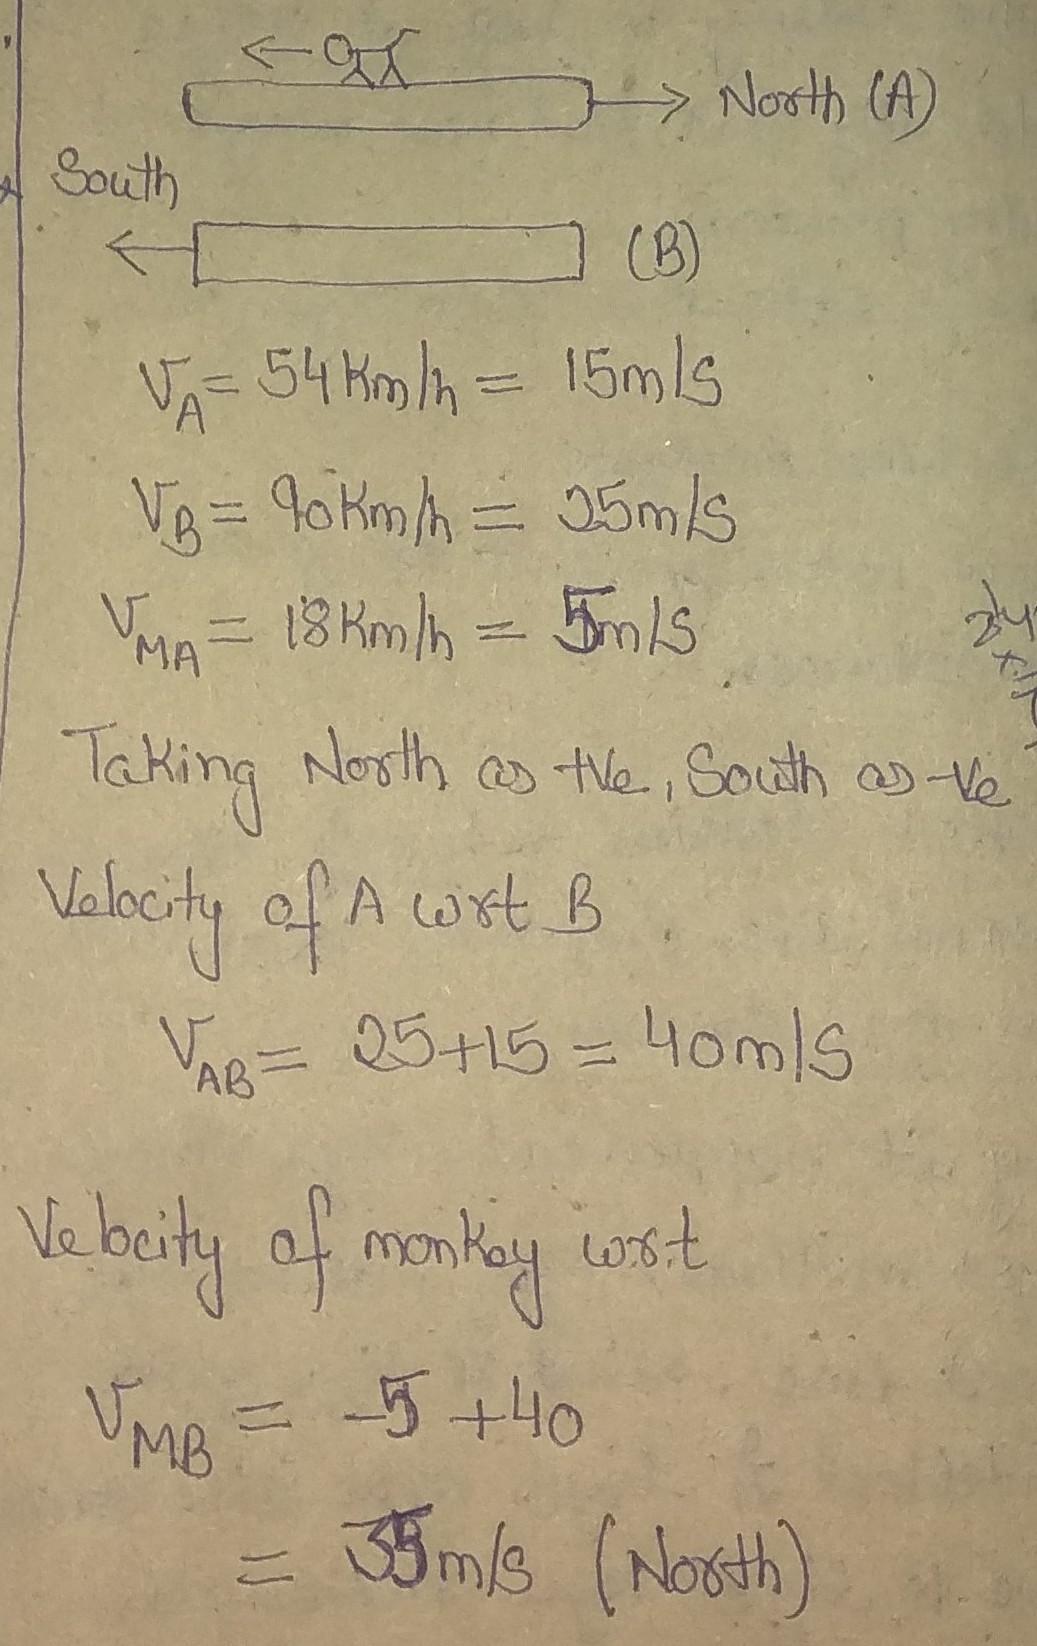 North (A)
South
(B)
V_A = 54 Km/h = 15m/s
V_B = 90Km/h = 25m/s
V_MA = 18Km/h = 5m/s
Taking North as +ve, South as -ve
Velocity of A wrt B
V_AB = 25+15 = 40m/s
Velocity of monkey w.r.t
V_MB = -5 +40
= 35m/s (North)